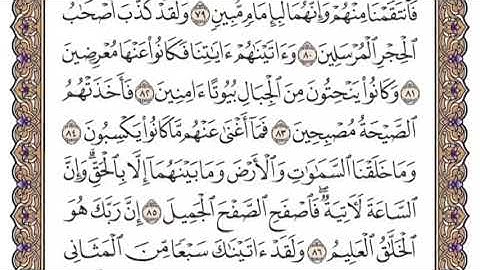 فَٱنتَقَمۡنَا مِنۡهُمۡ وَإِنَّهُمَا لَبِإِمَامٖ مُّبِينٖ ٧٩ وَلَقَدۡ كَذَّبَ أَصۡحَٰبُ
ٱلۡحِجۡرِ ٱلۡمُرۡسَلِينَ ٨٠ وَءَاتَيۡنَٰهُمۡ ءَايَٰتِنَا فَكَانُواْ عَنۡهَا مُعۡرِضِينَ
٨١ وَكَانُواْ يَنۡحِتُونَ مِنَ ٱلۡجِبَالِ بُيُوتًا ءَامِنِينَ ٨٢ فَأَخَذَتۡهُمُ
ٱلصَّيۡحَةُ مُصۡبِحِينَ ٨٣ فَمَآ أَغۡنَىٰ عَنۡهُم مَّا كَانُواْ يَكۡسِبُونَ ٨٤
وَمَا خَلَقۡنَا ٱلسَّمَٰوَٰتِ وَٱلۡأَرۡضَ وَمَا بَيۡنَهُمَآ إِلَّا بِٱلۡحَقِّۗ وَإِنَّ
ٱلسَّاعَةَ لَأٓتِيَةٞۖ فَٱصۡفَحِ ٱلصَّفۡحَ ٱلۡجَمِيلَ ٨٥ إِنَّ رَبَّكَ هُوَ
ٱلۡخَلَّٰقُ ٱلۡعَلِيمُ ٨٦ وَلَقَدۡ ءَاتَيۡنَٰكَ سَبۡعٗا مِّنَ ٱلۡمَثَانِي